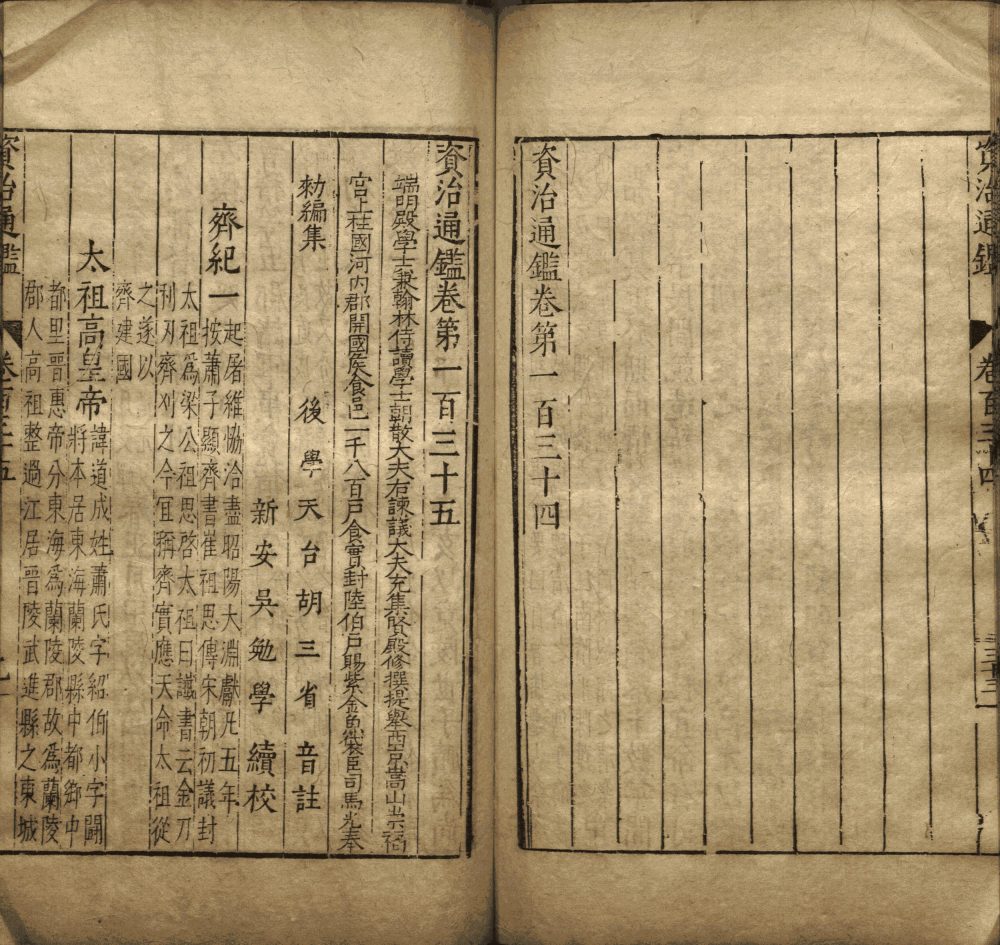 資治通鑑
卷百三十四
三十三
資治通鑑卷第一百三十四
資治通鑑卷第一百三十五
端明殿學士兼翰林侍讀學士朝散大夫右諫議大夫充集賢殿修撰提舉西京嵩山崇福
宮上柱國河內郡開國侯食邑一千八百戶食實封陸伯戶賜紫金魚袋臣司馬光奉
勑編集
後學天台胡三省音註
新安吳勉學續校
齊紀一
起屠維協洽盡昭陽大淵獻凡五年
按蕭子顯齊書崔祖思傳宋朝初議封
太祖為梁公祖思啓太祖曰讖書云金刀
刋刃齊刈之今宜稱齊實應天命太祖從
之遂以
齊建國
太祖高皇帝
諱道成姓蕭氏字紹伯小字鬬
將本居東海蘭陵縣中都鄉中
都里晉惠帝分東海為蘭陵郡故為蘭陵
郡人高祖整過江居晉陵武進縣之東城
資治通鑑
卷百三十五